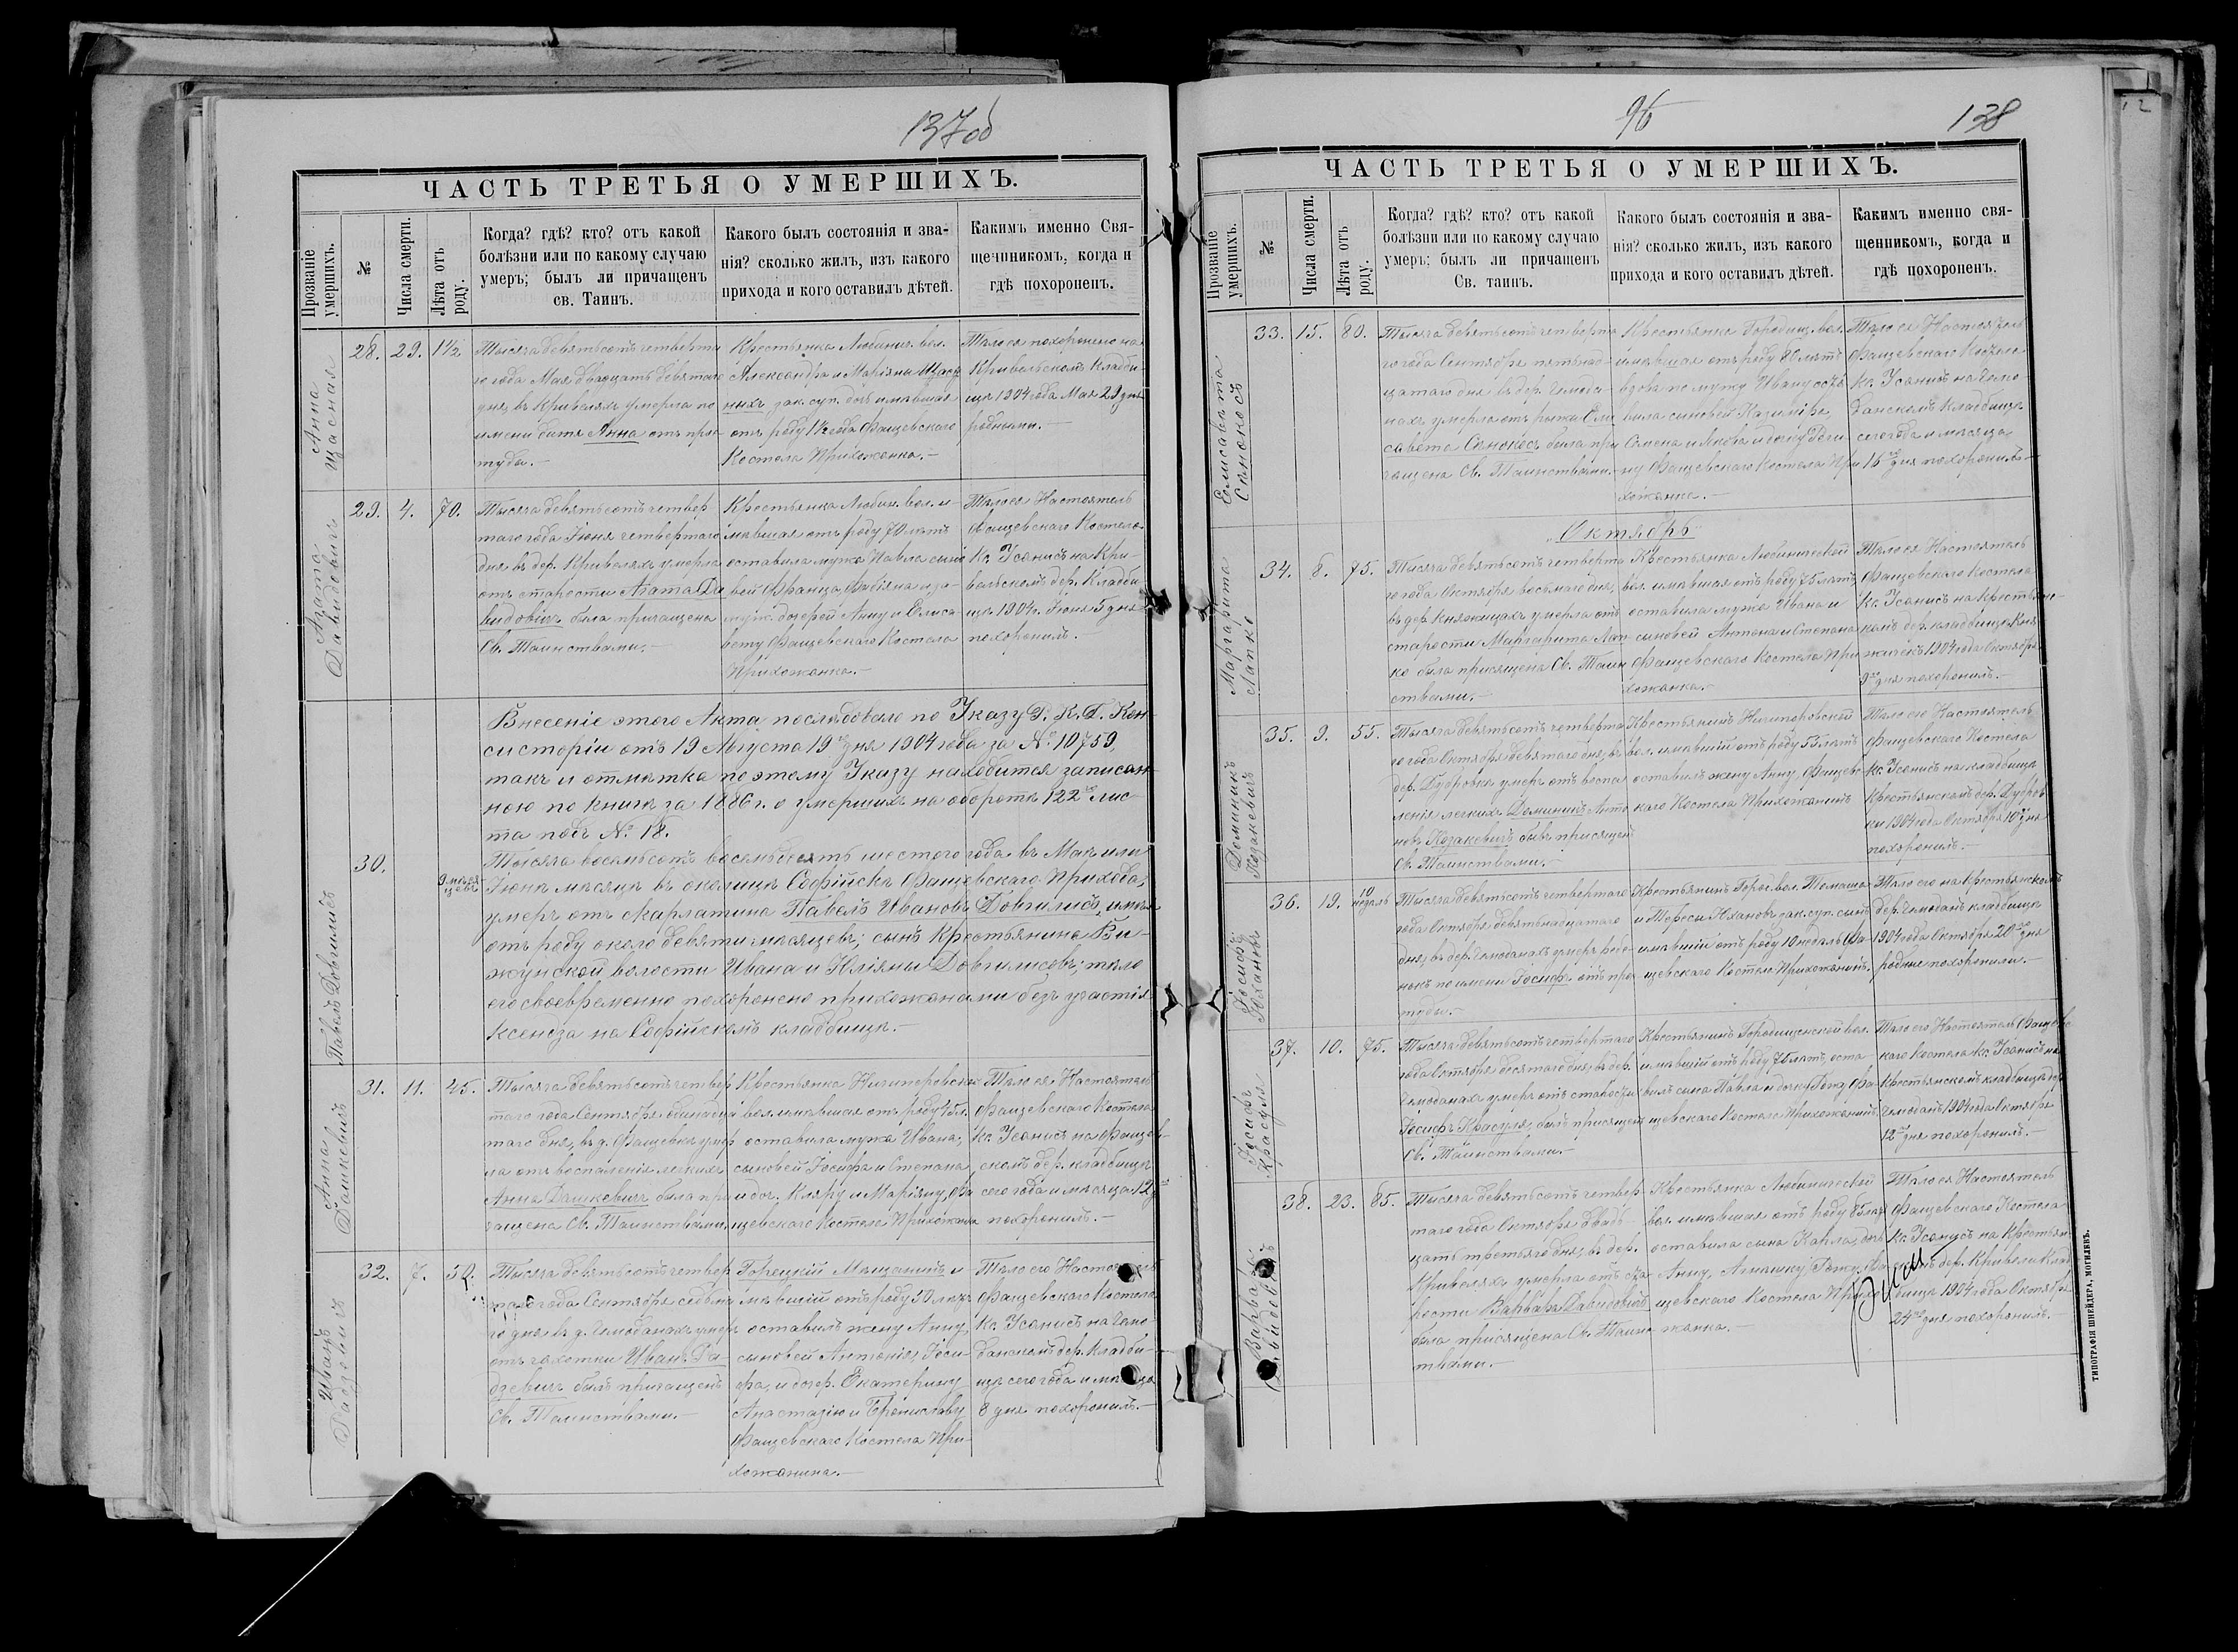 137об
ЧАСТЬ ТРЕТЬЯ О УМЕРШИХЪ.
Прозваніе умершихъ.
№
Числа смерти.
Лѣта отъ роду.
Когда? гдѣ? кто? отъ какой
болѣзни или по какому случаю
умеръ; былъ ли причащенъ
св. Таинъ.
Какого былъ состоянія и зва-
нія? сколько жилъ, изъ какого
прихода и кого оставилъ дѣтей.
Какимъ именно Свя-
щенникомъ, когда и
гдѣ похороненъ.
Анна
Щасная
28. 29. 1½
Тысяча девятьсотъ четверта
го года Мая двадцать девятаго
дня, въ Кривеляхъ умерла по
имени дитя Анна отъ прос
туды.—
Крестьянка Любинич. вол.
Александра и Маріяны Щасн
ныхъ зак. суп. дочь имѣвшая
отъ роду 1½ года Фащевскаго
Костела Прихожанка.—
Тѣло ея похоронено на
Кривельскомъ кладби-
щѣ 1904 года Мая 29 дня
родными.—
Агата
Давидовичъ
29. 4. 70.
Тысяча девятьсотъ четвер
таго года Іюня четвертаго
дня въ дер. Кривеляхъ умерла
отъ старости Агата Да
видовичъ была причащена
Св. Таинствами.—
Крестьянка Любин. вол. и-
мѣвшая отъ роду 70 лѣтъ
оставила мужа Павла сыно
вей Франца, Фабіяна и за-
мужн. дочерей Анну и Елиса
вету Фащевскаго Костела
Прихожанка.—
Тѣло ея Настоятель
Фащевскаго Костела
Кс. Усанисъ на Кри-
вельскомъ дер. Кладби-
щѣ 1904 г. Іюня 5 дня
похоронилъ.—
Внесеніе этого Акта послѣдовало по Указу Р. К. Д. Кон-
систоріи отъ 19 Августа 19го дня 1904 года за № 10759,
такъ и отмѣтка по этому Указу находится записан-
ною по книгѣ за 1886 г. о умершихъ на оборотѣ 122го лис-
та подъ № 18.
Павелъ Довгилисъ
30.
9 мѣся-
цевъ
Тысяча восемьсотъ восемьдесятъ шестого года въ Маѣ или
Іюнѣ мѣсяцѣ въ околицѣ Софійскѣ Фащевскаго Прихода,
умеръ отъ скарлатина Павелъ Ивановъ Довгилисъ, имѣя
отъ роду около девяти мѣсяцевъ; сынъ Крестьянина Ви-
жунской волости Ивана и Юліяны Довгилисовъ; тѣло
его своевременно похоронено прихожанами безъ участія
Ксендза на Софійскомъ кладбищѣ.—
Анна
Дашкевичъ
31. 11. 45.
Тысяча девятьсотъ четвер
таго года Сентября одинадца
таго дня, въ д. Фащевкѣ умер
ла отъ воспаленія легкихъ
Анна Дашкевичъ была при
чащена Св. Таинствами.
Крестьянка Ничипоровской
вол. имѣвшая отъ роду 45 л.
оставила мужа Ивана,
сыновей Іосифа и Степана
и доч. Кляру и Маріяну, Фа
щевскаго Костела Прихожанка
Тѣло ея Настоятель
Фащевскаго Костела
Кс. Усанисъ на Фащев-
скомъ дер. кладбищѣ
сего года и мѣсяца 12 дня
похоронилъ.—
Иванъ
Радзевичъ
32. 7. 50.
Тысяча девятьсотъ четвер
таго года Сентября седьма
го дня въ д. Чемоданахъ умеръ
отъ чахотки Иванъ Ра
дзевичъ былъ причащенъ
Св. Таинствами.—
Горецкій Мѣщанинъ и
мѣвшій отъ роду 50 лѣтъ
оставилъ жену Анну,
сыновей Антонія, Іоси
фа, и дочер. Екатерину
Анастазію и Брониславу
Фащевскаго Костела При-
хожанина.—
Тѣло его Настоятель
Фащевскаго Костела
Кс. Усанисъ на Чемо-
данскомъ дер. Кладби-
щѣ сего года и мѣсяца
8 дня похоронилъ.—
96
138
ЧАСТЬ ТРЕТЬЯ О УМЕРШИХЪ.
Прозваніе умершихъ.
№
Числа смерти.
Лѣта отъ роду.
Когда? гдѣ? кто? отъ какой
болѣзни или по какому случаю
умеръ; былъ ли причащенъ
Св. таинъ.
Какого былъ состоянія и зва-
нія? сколько жилъ, изъ какого
прихода и кого оставилъ дѣтей.
Какимъ именно свя-
щенникомъ, когда и
гдѣ похороненъ.
Елисавета
Сѣнокосъ
33. 15. 80.
Тысяча девятьсотъ четверта
го года Сентября пятнад-
цатаго дня въ дер. Чемода-
нахъ умерла отъ рака Ели
савета Сѣнокосъ была при
чащена Св. Таинствами.
Крестьянка Городищ. вол.
имѣвшая отъ роду 80 лѣтъ
вдова по мужу Ивану оста
вила сыновей Казиміра,
Семена и Якова и дочку Реги
ну Фащевскаго Костела При
хожанка.—
Тѣло ея Настоятель
Фащевскаго Костела
Кс. Усанисъ на Чемо
данскомъ кладбищѣ
сего года и мѣсяца
16го дня похоронилъ.
Октябрь
Маргарита
Лапко
34. 8. 75.
Тысяча девятьсотъ четверта
го года Октября восьмаго дня,
въ дер. Княжицахъ умерла отъ
старости Маргарита Лап-
ко была причащена Св. Таин
ствами.—
Крестьянка Любинической
вол. имѣвшая отъ роду 75 лѣтъ
оставила мужа Ивана и
сыновей Антона и Степана
Фащевскаго Костела При
хожанка.—
Тѣло ея Настоятель
Фащевскаго Костела
Кс. Усанисъ на Крестьянс-
комъ дер. кладбищѣ Кня
жицкъ 1904 года Октября
9го дня похоронилъ.—
Доминикъ
Казакевичъ
35. 9. 55.
Тысяча девятьсотъ четверта
го года Октября девятаго дня, въ
дер. Дубровкѣ умеръ отъ воспа
ленія легкихъ Доминикъ Анто
новъ Казакевичъ бывъ причащенъ
Св. Таинствами.—
Крестьянинъ Ничипоровской
вол. имѣвшій отъ роду 55 лѣтъ
оставилъ жену Анну, Фащевс-
каго Костела Прихожанинъ
Тѣло его Настоятель
Фащевскаго Костела
Кс. Усанисъ на кладбищѣ
Крестьянскомъ дер. Дубров
ки 1904 года Октября 10го дня
похоронилъ.—
Іосифъ
Юхановъ
36. 19. 10 недѣль
Тысяча девятьсотъ четвертаго
года Октября девятнадцатаго
дня, въ дер. Чемоданахъ умеръ ребе-
нокъ по имени Іосифъ отъ прос
туды.—
Крестьянинъ Горос. вол. Томаша
и Тересы Юхановъ зак. суп. сынъ
имѣвшій отъ роду 10 недѣль Фа-
щевскаго Костела Прихожанинъ.
Тѣло его на Крестьянскомъ
дер. Чемоданъ кладбищѣ
1904 года Октября 20го дня
родные похоронили.—
Іосифъ
Красуля
37. 10. 75.
Тысяча девятьсотъ четвертаго
года Октября десятаго дня, въ дер.
Чемоданахъ умеръ отъ старости
Іосифъ Красуля, былъ причащенъ
Св. Таинствами.—
Крестьянинъ Городищенской вол.
имѣвшій отъ роду 75 лѣтъ, оста-
вилъ сына Павла и дочку Розу, Фа-
щевскаго Костела Прихожанинъ.
Тѣло его Настоятель Фащевс
каго Костела Кс. Усанисъ на
Крестьянскомъ кладбищѣ дер.
Чемоданъ 1904 года Октября
12го дня похоронилъ.—
Варвара
Давидовичъ
38. 23. 85.
Тысяча девятьсотъ четвер-
таго года Октября двад-
цать третьяго дня, въ дер.
Кривеляхъ умерла отъ ста
рости Варвара Давидовичъ
была причащена Св. Таинс
твами.—
Крестьянка Любинической
вол. имѣвшая отъ роду 85 лѣтъ
оставила сына Карла, доч.
Анну, Агнешку, Розу, Фа-
щевскаго Костела Прихо
жанка.—
Тѣло ея Настоятель
Фащевскаго Костела
Кс. Усанисъ на Крестьян-
скомъ дер. Кривели Клад
бищѣ 1904 года Октября
24го дня похоронилъ.—
ТИПОГРАФІЯ ШНЕЙДЕРА, МОГИЛЕВЪ.